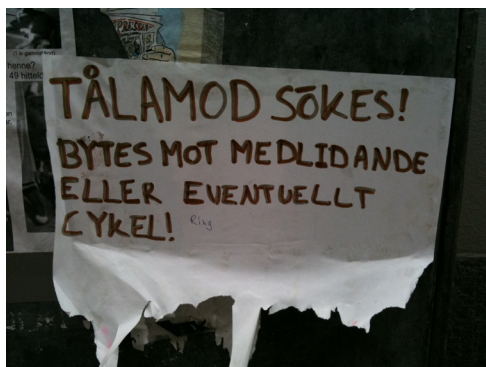 henne?
49 hittelö
TÅLAMOD SÖKES!
BYTES MOT MEDLIDANDE
ELLER EVENTUELLT
CYKEL! Ring